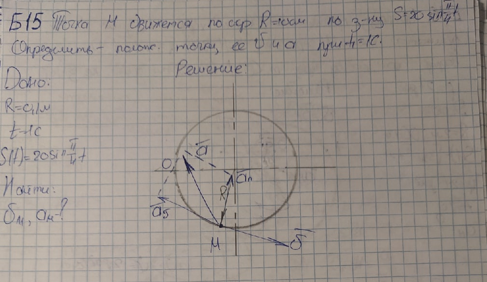 Б15 Точка М движется по окр R=10см по з-ну S=20sin π/4 t
Определить полож. точки, ее υ и a при t=1с.
Решение:
Дано:
R=0,1м
t=1с
S(t)=20sin π/4 t
Найти:
υм, aм-?
O
a
an
R
aτ
M
υ